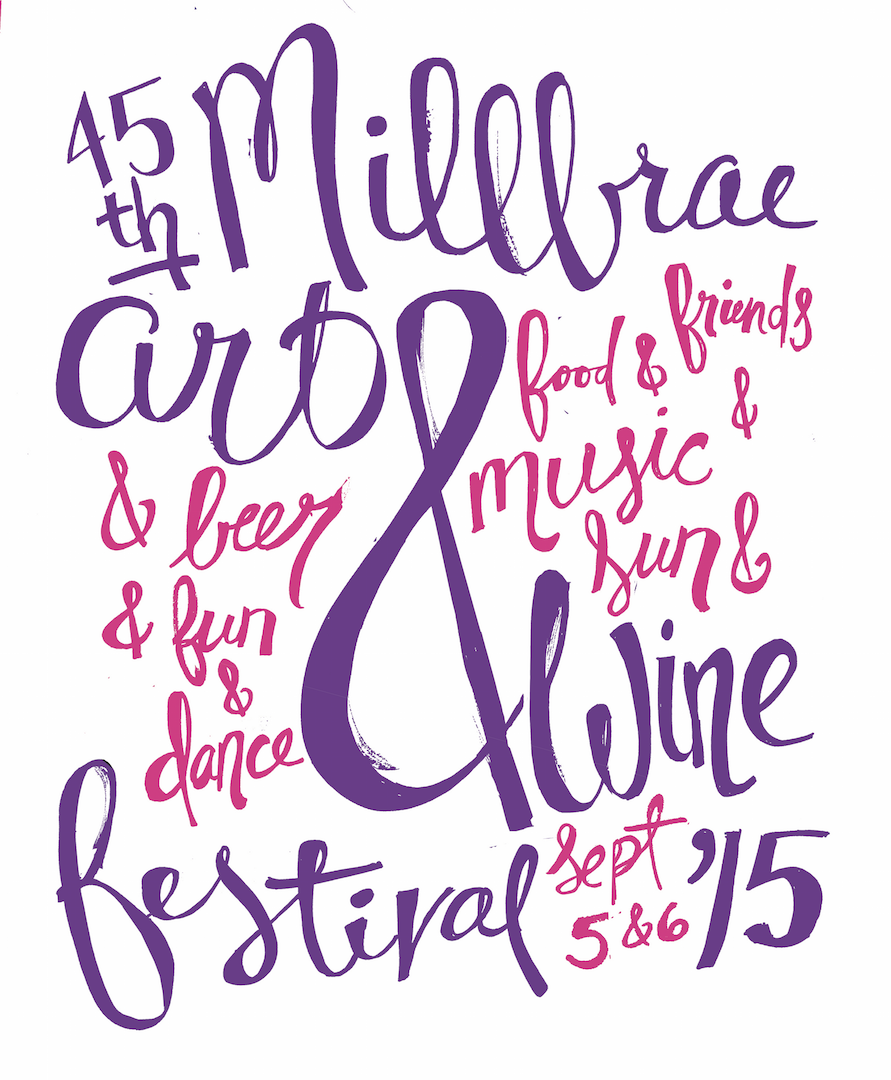 45th Millbrae
art &
food & friends
&
music
sun &
& beer
& fun
&
dance
Wine
festival
sept
5 & 6 '15